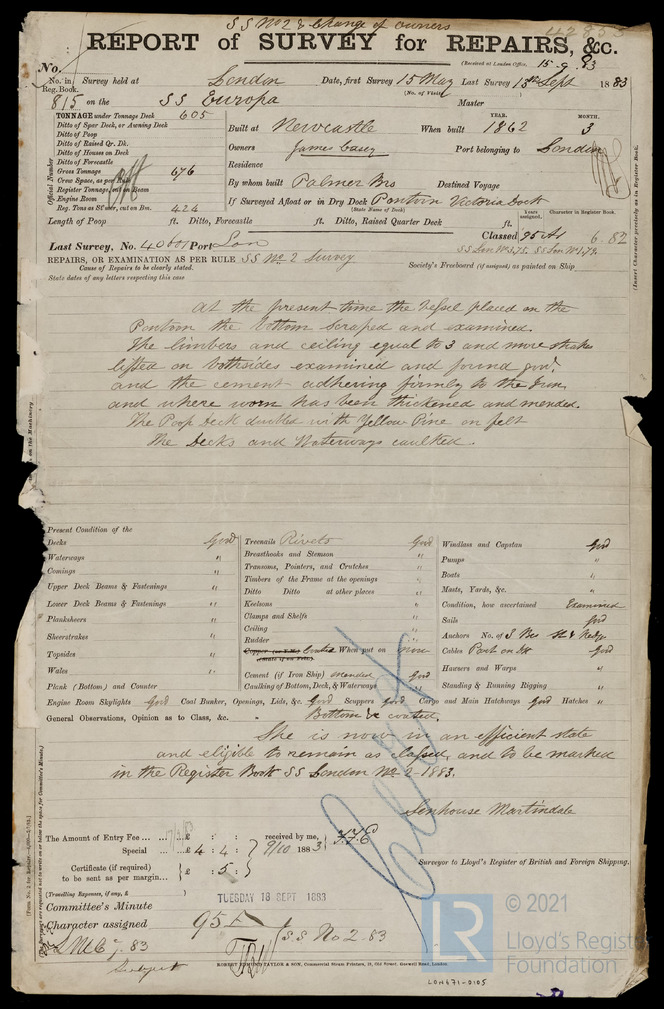 SS No 2 & Change of owners
REPORT of SURVEY for REPAIRS, &c.
(Received at London Office, 15-9 83
No.
No. in Survey held at London Date, first Survey 15 May Last Survey 15th Sept 1883
Reg. Book. (No. of Visits)
815 on the SS Europa Master
TONNAGE under Tonnage Deck 605
Ditto of Spar Deck, or Awning Deck
Ditto of Poop
Ditto of Raised Qr. Dk.
Ditto of Houses on Deck
Ditto of Forecastle
Gross Tonnage 676
Crew Space, as per
Register Tonnage, cut on Beam
Engine Room
Reg. Tons as St'mer, cut on Bm. 424
Official Number
YEAR. MONTH.
Built at Newcastle When built 1862 3
Owners James Casey Port belonging to London
Residence
By whom built Palmer Bros Destined Voyage
If Surveyed Afloat or in Dry Dock Pontoon Victoria Dock
(State Name of Dock)
Length of Poop ft. Ditto, Forecastle ft. Ditto, Raised Quarter Deck ft.
Years assigned. Character in Register Book.
Classed 95 A1 6.82
Last Survey, No. 40601 Port Lon
SS Lon No 3,75. SS Lon No 1,79.
REPAIRS, OR EXAMINATION AS PER RULE SS No 2 Survey
Cause of Repairs to be clearly stated. Society's Freeboard (if assigned) as painted on Ship
State dates of any letters respecting this case
(Insert Character precisely as in Register Book.)
At the present time the Vessel placed on the
Pontoon the bottom scraped and examined.
The limbers and ceiling equal to 3 and more strakes
lifted on bothsides examined and found good
and the cement adhering firmly to the Iron
and where worn has been thickened and mended.
The Poop Deck doubled with Yellow Pine on felt
The Decks and Waterways caulked.
on the Machinery
Present Condition of the
Decks Good
Waterways "
Comings "
Upper Deck Beams & Fastenings "
Lower Deck Beams & Fastenings "
Planksheers "
Sheerstrakes "
Topsides "
Wales "
Plank (Bottom) and Counter "
Treenails Rivets Good
Breasthooks and Stemson "
Transoms, Pointers, and Crutches "
Timbers of the Frame at the openings "
Ditto Ditto at other places "
Keelsons "
Clamps and Shelfs "
Ceiling "
Rudder "
Copper (or Y.M.) Coated When put on now
(State if on Felt)
Cement (if Iron Ship) mended Good
Caulking of Bottom, Deck, & Waterways "
Windlass and Capstan Good
Pumps "
Boats "
Masts, Yards, &c. "
Condition, how ascertained Examined
Sails Good
Anchors No. of 3 Bro St & Kedge
Cables Good
Hawsers and Warps "
Standing & Running Rigging "
Engine Room Skylights Good Coal Bunker, Openings, Lids, &c. Good Scuppers Good Cargo and Main Hatchways Good Hatches "
General Observations, Opinion as to Class, &c. " Bottom & coated.
She is now in an efficient state
and eligible to remain as classed, and to be marked
in the Register Book SS London No 2-1883.
Senhouse Martindale
Surveyor to Lloyd's Register of British and Foreign Shipping.
The Amount of Entry Fee ... £ : :
Special ... £ 4 : 4 :
received by me,
9/10 1883
Certificate (if required)
to be sent as per margin... £ : 5 :
(Travelling Expenses, if any, £ )
TUESDAY 18 SEPT 1883
Committee's Minute
Character assigned 95A
SS No 2.83
LMC 7.83
Subject
ROBERT EDMUND TAYLOR & SON, Commercial Steam Printers, 19, Old Street, Goswell Road, London.
LR
© 2021
Lloyd's Register
Foundation
LON671-0105